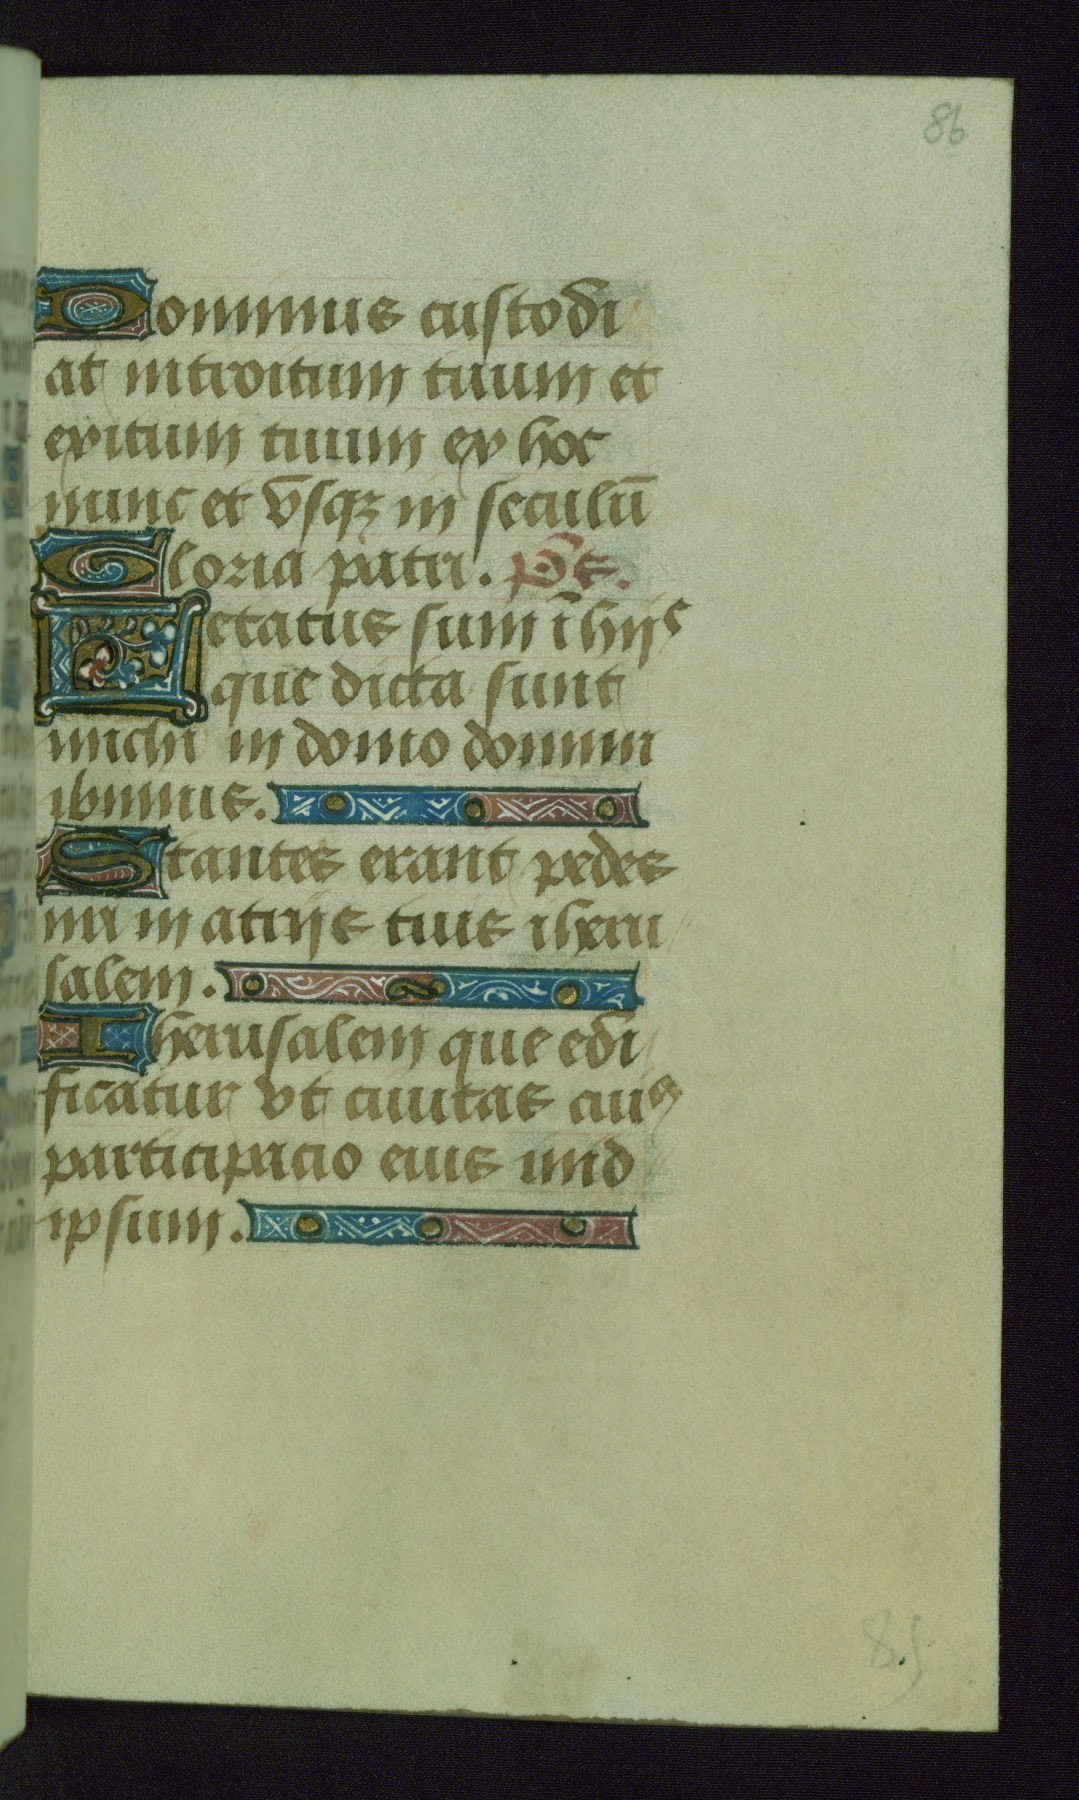 86
Dominus custodi
at introitum tuum et
exitum tuum ex hoc
nunc et vsqꝫ in seculū
Gloria patri. p̄s.
Letatus sum ī hijs
que dicta sunt
michi in domo domini
ibimus.
Stantes erant pedes
nri in atrijs tuis iheru
salem.
Iherusalem que edi
ficatur vt ciuitas cuiꝰ
participacio eius in id
ipsum.
85